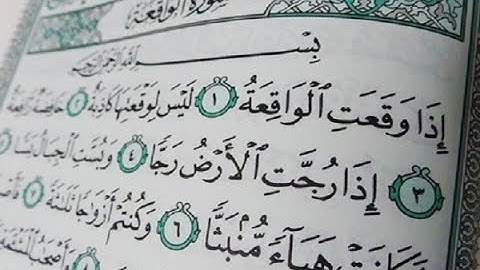 سُورَةُ الْوَاقِعَةِ
بِسْمِ ٱللَّهِ ٱلرَّحْمَٰنِ ٱلرَّحِيمِ
إِذَا وَقَعَتِ ٱلْوَاقِعَةُ ١ لَيْسَ لِوَقْعَتِهَا كَاذِبَةٌ ٢ خَافِضَةٌ رَّافِعَةٌ
٣ إِذَا رُجَّتِ ٱلْأَرْضُ رَجًّا ٤ وَبُسَّتِ ٱلْجِبَالُ بَسًّا ٥
فَكَانَتْ هَبَآءً مُّنۢبَثًّا ٦ وَكُنتُمْ أَزْوَٰجًا ثَلَٰثَةً ٧
وَأَصْحَٰبُ